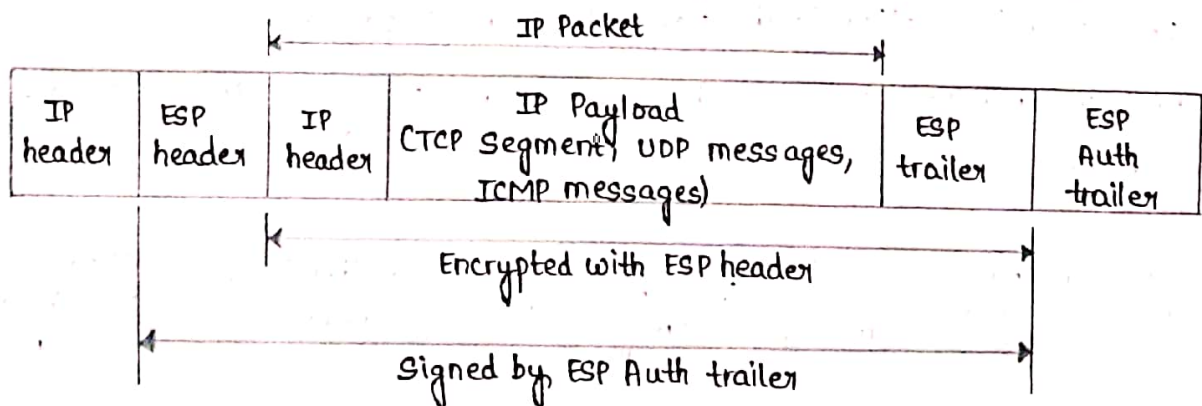 IP Packet
IP header
ESP header
IP header
IP Payload
(TCP Segment, UDP messages,
ICMP messages)
ESP trailer
ESP Auth trailer
Encrypted with ESP header
Signed by ESP Auth trailer